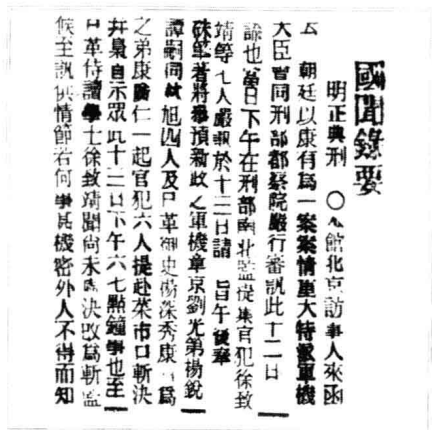 國聞錄要
明正典刑　〇本館北京訪事人來函
云　朝廷以康有爲一案案情重大特派軍機
大臣會同刑部都察院嚴行審訊此十二日
諭也當日下午在刑部南北監提集官犯徐致
靖等七人嚴訊於十三日請　旨午後奉
硃筆著將參預新政之軍機章京劉光第楊銳
譚嗣同林旭四人及已革御史楊深秀康有爲
之弟康廣仁一起官犯六人提赴菜市口斬決
并梟首示眾此十三日下午六七點鐘事也至
已革侍讀學士徐致靖聞尚未處決改爲斬監
候至訊供情節若何事甚機密外人不得而知